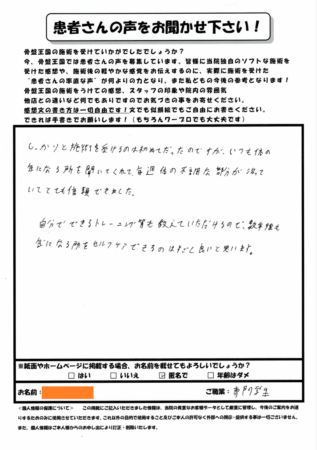 患者さんの声をお聞かせ下さい！
骨盤王国の施術を受けていかがでしたでしょうか？
今、骨盤王国では患者さんの声を募集しています。皆様に当院独自のソフトな施術を
受けた感想や、施術後の軽やかな感覚をお伝えするのに、実際に施術を受けた
“患者さんの率直な声”が何よりの力となり、また私どもの今後の参考となります！
骨盤王国の施術をうけての感想、スタッフの印象や院内の雰囲気
他店との違いなど何でもありですのでお気づきの事をお寄せください。
感想文の書き方は一切自由です！文でも似顔絵でもご自由にお書きください。
できれば手書きでお願いします！（もちろんワープロでも大丈夫です）
しっかりと施術を受けるのは初めてだったのですが、いつも体の
気になる所を聞いてくれて、毎週体の不調な部分が治って
いてとても信頼できました。
自分でできるトレーニング等も教えていただけるので、
気になる所をセルフケアできるのはすごく良いと思います。
※紙面やホームページに掲載する場合、お名前を載せてもよろしいでしょうか？
□ はい □ いいえ ☑ 匿名で □ 年齢はダメ
お名前： ご職業：専門学生
＜個人情報の保護について＞ この用紙にご記入いただきました情報は、当院の貴重なお客様データとして厳重に管理し、今後のご案内をお送
りするためのみに使用させていただきます。これ以外の目的で使用すること及びご本人の許可なく外部への開示・提供する事は一切ございません。
また、個人情報はご本人様からのお申し出により訂正・削除いたします。